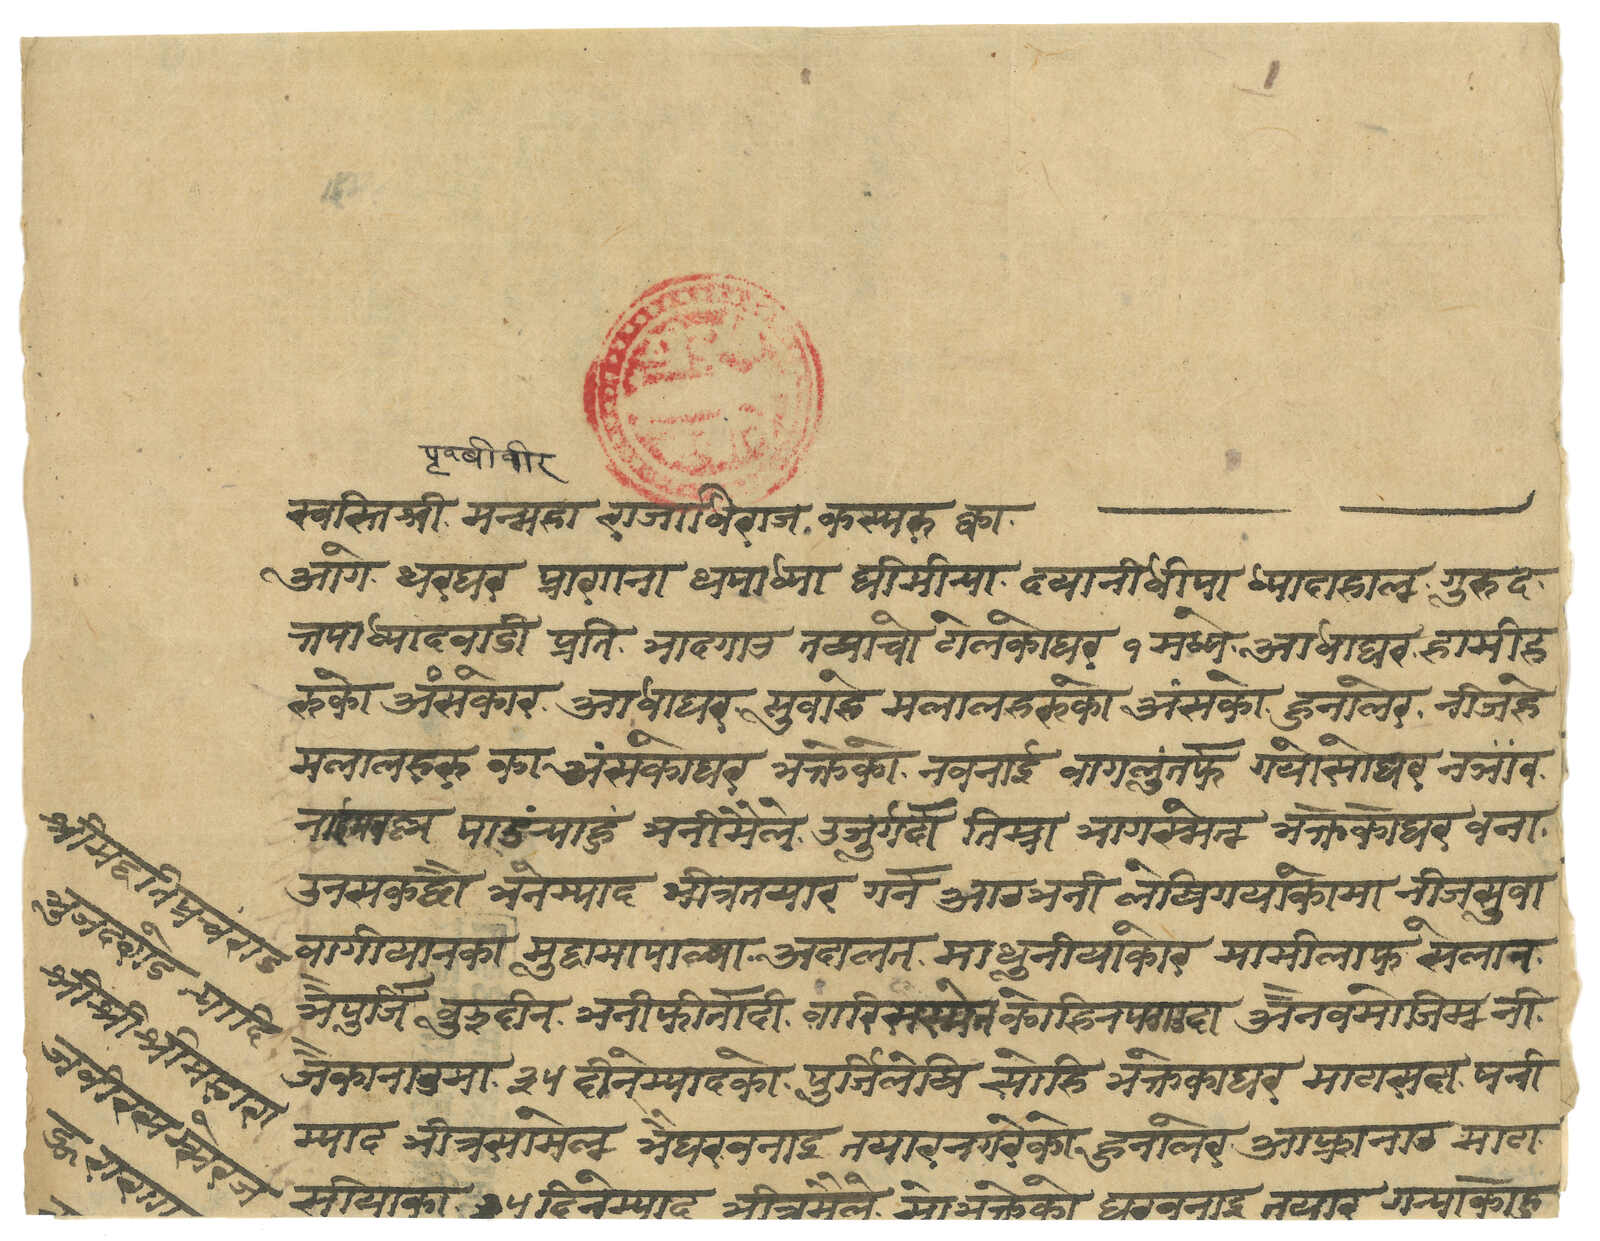 पृथ्वीवीर
स्वस्तिश्री मन्महाराजाधिराज कस्यरुक्का
आगे थरघर प्रागाना थपाध्या घीमीन्या दयानीधीपाध्यादाहाल गुरुद
त्तपाध्यादवाडी प्रति भादगाउ तव्याचो टोलकोघर १ मध्ये आधाघर हामीह
रुको अंसकोर आधाघर सुवाहेमलालहरुको अंसको हुनालेर नीजहे
मलालहरु का अंसकोघर भत्केको नवनाई वागलुंतर्फ गयोसोघर नञांव
पाउंन्याहुं भनीमैले उजुर्गर्दा तिम्रा भागसमेत भत्केकोघर वना
उनसकछौ भनेम्याद भीत्रतयार गर्न आउभनी लेषिगयाकोमा नीजसुवा
वागीयानका मुद्दामापाल्पा अदालत माथुनीयाकोर मामीलाफैसलान
भैपुर्जि वुझदीन भनीफीर्तादी वारिससमेतकोहिनपठाउदा अैनवमोजिम्नी
जैकानाउमा ३५ दीनेम्यादको पुर्जिलेषि सोहि भत्केकाघर माटासदा पनी
म्याद भीत्रसामेल भैघरवनाइ तयारनगरेको हुनालेर आफ्नानाउ माटा
सीयाका ३५दिनेम्याद भीत्रमैले सोभत्केको घरवनाइ तयार गन्याकोहु
श्रीमद्दतिप्रचंडा
भुजदंडेत्यादि
श्रीश्रीश्रीमहारा
जवीरसम्सेरज
ङ्गराणा